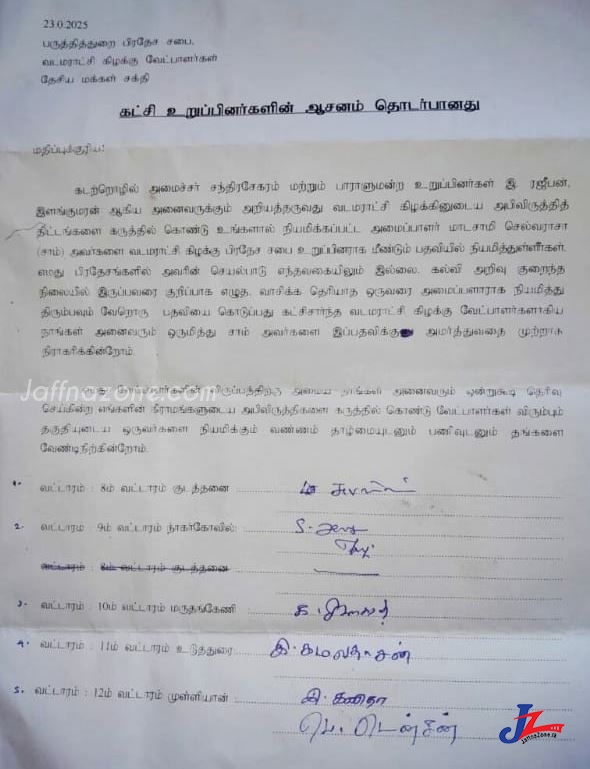 23.0.2025
பருத்தித்துறை பிரதேச சபை,
வடமராட்சி கிழக்கு வேட்பாளர்கள்
தேசிய மக்கள் சக்தி
கட்சி உறுப்பினர்களின் ஆசனம் தொடர்பானது
மதிப்புக்குரிய!
கடற்றொழில் அமைச்சர் சந்திரசேகரம் மற்றும் பாராளுமன்ற உறுப்பினர்கள் இ. ரஜீபன்,
இளங்குமரன் ஆகிய அனைவருக்கும் அறியத்தருவது வடமராட்சி கிழக்கினுடைய அபிவிருத்தித்
திட்டங்களை கருத்தில் கொண்டு உங்களால் நியமிக்கப்பட்ட அமைப்பாளர் மாடசாமி செல்வராசா
(சாம்) அவர்களை வடமராட்சி கிழக்கு பிரதேச சபை உறுப்பினராக மீண்டும் பதவியில் நியமித்துள்ளீர்கள்.
எமது பிரதேசங்களில் அவரின் செயல்பாடு எந்தவகையிலும் இல்லை. கல்வி அறிவு குறைந்த
நிலையில் இருப்பவரை குறிப்பாக எழுத, வாசிக்க தெரியாத ஒருவரை அமைப்பளாராக நியமித்து
திரும்பவும் வேறொரு பதவியை கொடுப்பது கட்சிசார்ந்த வடமராட்சி கிழக்கு வேட்பாளர்களாகிய
நாங்கள் அனைவரும் ஒருமித்து சாம் அவர்களை இப்பதவிக்கு அமர்த்துவதை முற்றாக
நிராகரிக்கின்றோம்.
விருப்பத்திற்கு அமைய நாங்கள் அனைவரும் ஒன்றுகூடி தெரிவு
செய்கின்ற எங்களின் கிராமங்களுடைய அபிவிருத்திகளை கருத்தில் கொண்டு வேட்பாளர்கள் விரும்பும்
தகுதியுடைய ஒருவர்களை நியமிக்கும் வண்ணம் தாழ்மையுடனும் பணிவுடனும் தங்களை
வேண்டிநிற்கின்றோம்.
Jaffnazone.com
1. வட்டாரம் : 8ம் வட்டாரம் குடத்தனை
2. வட்டாரம : 9ம் வட்டாரம் நாகர்கோவில்:
வட்டாரம் : 8ம் வட்டாரம் குடத்தனை
3. வட்டாரம் : 10ம் வட்டாரம் மருதங்கேணி
4. வட்டாரம் : 11ம் வட்டாரம் உடுத்துரை இ. கமலதாசன்
5. வட்டாரம் : 12ம் வட்டாரம் முள்ளியான் இ. கனிதா
பெ. டென்சின்
JZ
JaffnaZone.lk